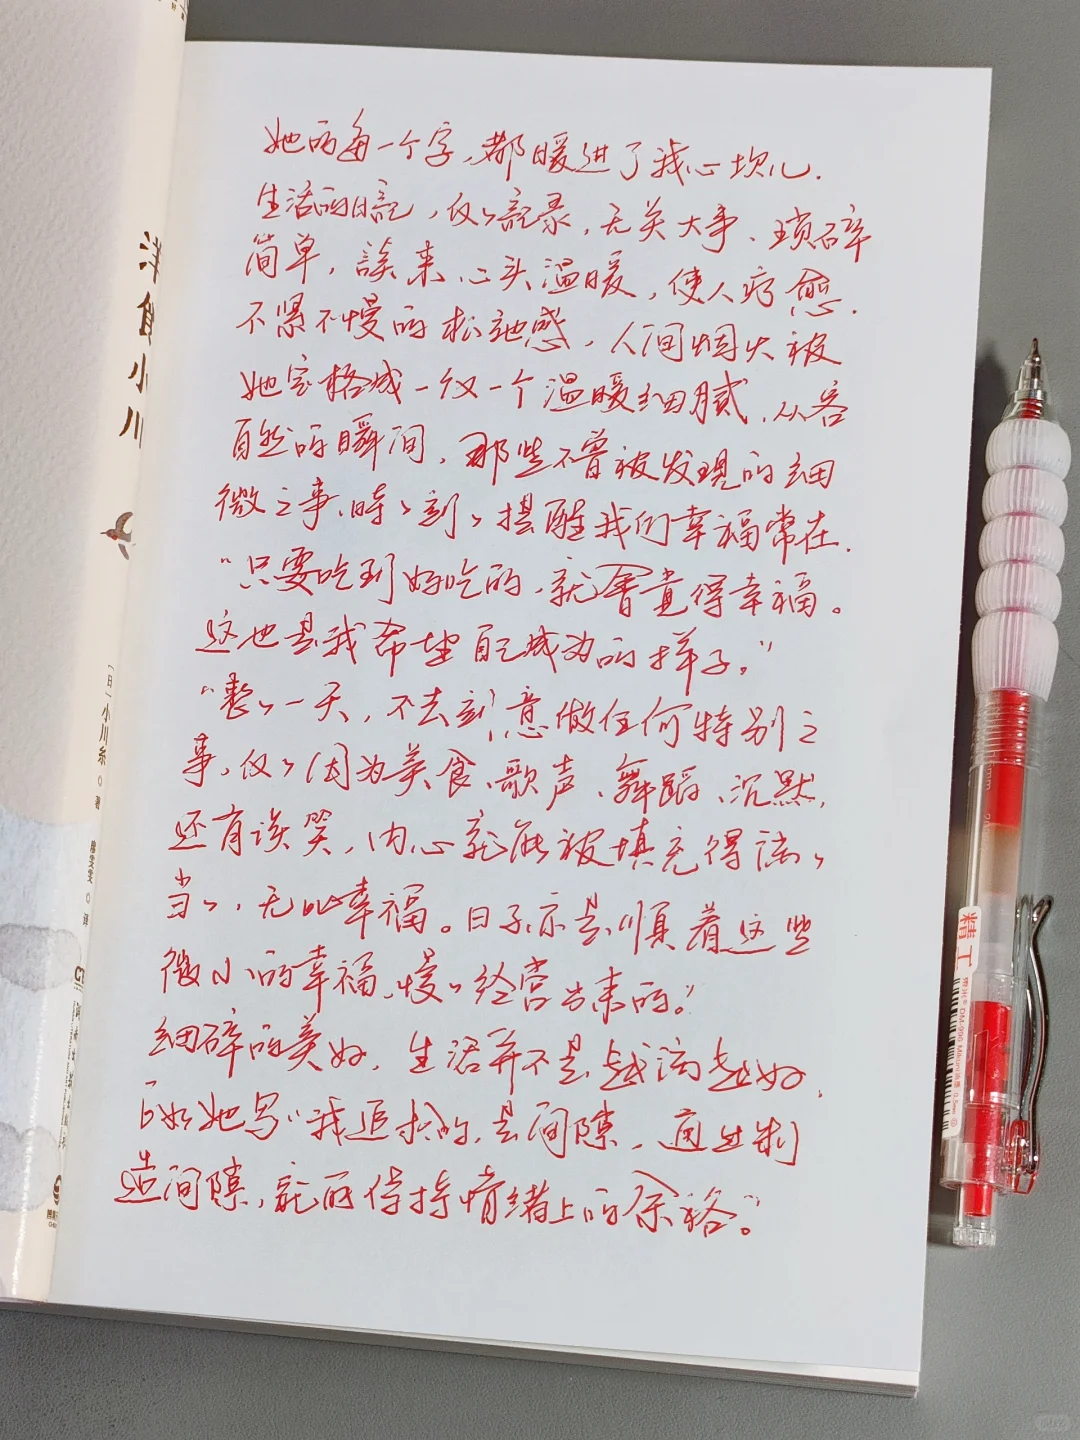 她的每一个字,都暖进了我心坎儿.
生活的日記,仅仅記录,无关大事、琐碎
简单,读来心头温暖,使人疗愈.
不紧不慢的松弛感,人间烟火被
她定格成一仅一个温暖细腻、从容
自然的瞬间,那些不曾被发現的细
微之事,時時刻刻提醒我们幸福常在.
"只要吃到好吃的,就會覚得幸福。
这也是我希望自己成为的样子。"
"整整一天,不去刻意做任何特别之
事,仅仅因为美食、歌声、舞蹈、沉默,
还有谈笑,内心就能被填充得满满
当当,无比幸福。日子亦是順着这些
微小的幸福,慢慢经营出来的。"
细碎的美好,生活并不是越满越好,
正如她写"我追求的,是间隙,通过制
造间隙,就的保持情绪上的余裕。"
洋食小川
[日]小川糸 ◎ 著
◎ 译
精工